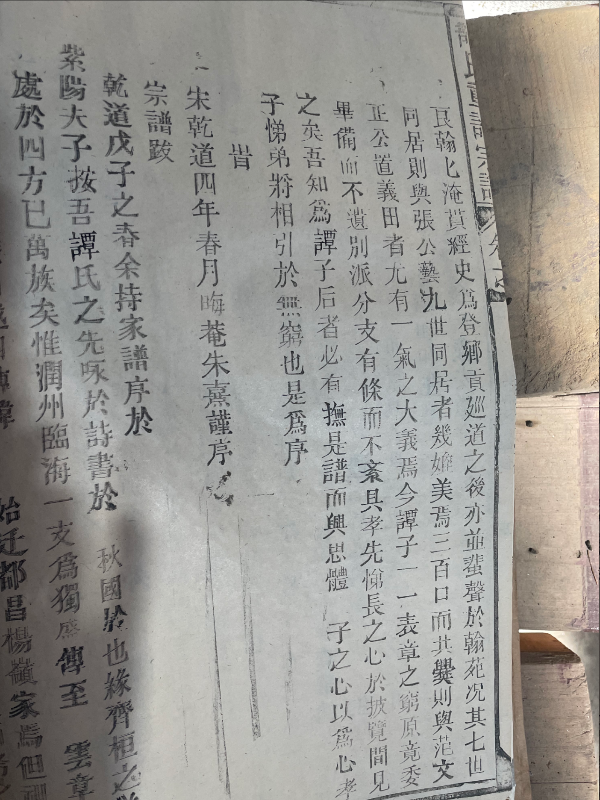 譚氏重譜宗譜
艮翰匕淹貫經史爲登鄉貢廵道之後亦並蜚聲於翰苑况其七世
同居則與張公藝九世同居者幾媲美焉三百口而共爨則與范文
正公道義田者尤有一氣之大義焉今譚子一一表章之窮原竟委
畢備而不遺別派分支有條而不紊具孝先悌長之心於披覽間見
之矣吾知爲譚子后者必有撫是譜而興思體 子之心以爲心孝
子悌弟將相引於無窮也是爲序
旹
宋乾道四年春月晦菴朱熹謹序
宗譜跋
乾道戊子之春余持家譜序於
紫陽夫子按吾譚氏之先咏於詩書於 秋國於也緣齊桓之
處於四方已萬族矣惟潤州臨海一支爲獨盛傳至 雲章
始迁都昌楊嶺家焉但